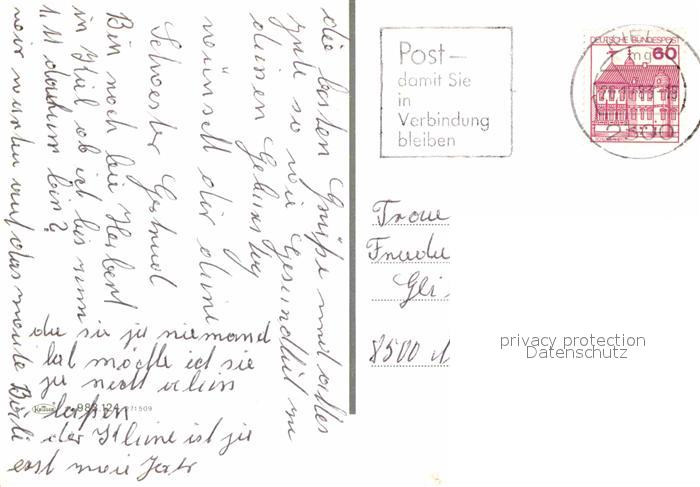 die besten Grüße und alles
gute so wie Gesundheit zu
deinen Geburtstag
wünscht dir deine
Schwester Gertrud
Bin noch bei Herbert
in Kiel ob ich bis zum
1. 11 daheim bin?
wir warten auf das zweite Büble
da sie ja niemand
hat möchte ich sie
ja nicht allein
laßen
der Kleine ist ja
erst zwei Jahr
Krüger 988.124 271509
Post –
damit Sie
in
Verbindung
bleiben
DEUTSCHE BUNDESPOST
60
KIEL
mg
2300
Frau
Friede
Gli
8500
privacy protection
Datenschutz